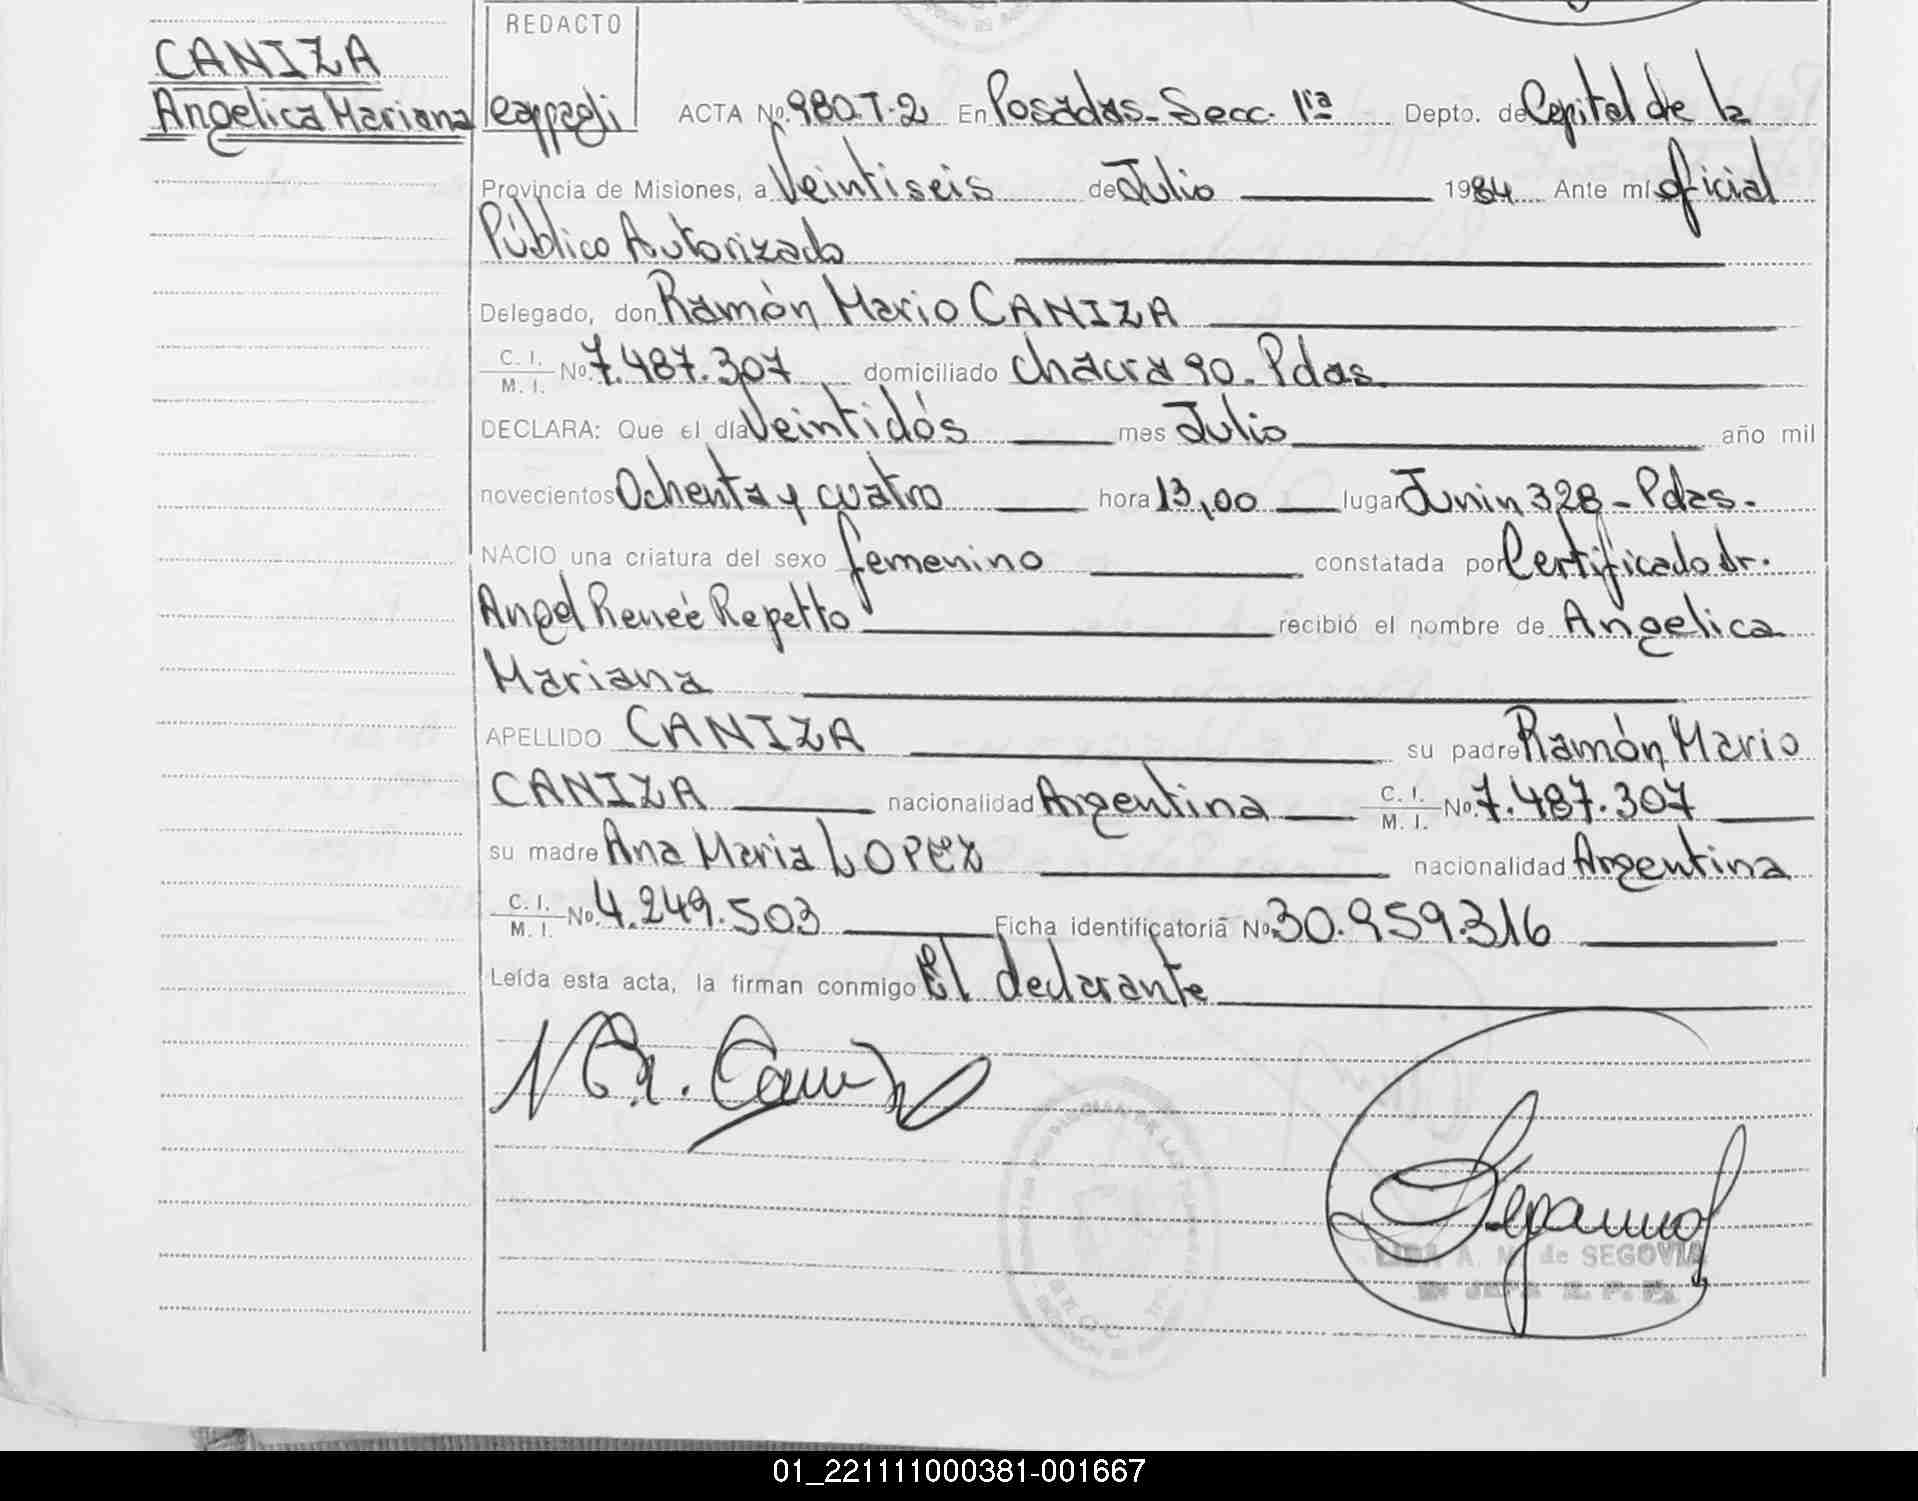 CANIZA
Angelica Mariana
REDACTO
ACTA Nº 980.T-2 En Posadas-Secc. 1ra Depto. de Capital de la
Provincia de Misiones, a Veintiseis de Julio 1984 Ante mí oficial
Público Autorizado
Delegado, don Ramón Mario CANIZA
C. I. M. I. Nº 7.487.307 domiciliado chacra 90. Pdas.
DECLARA: Que el día Veintidós mes Julio año mil
novecientos Ochenta y cuatro hora 13,00 lugar Junin 328 - Pdas.
NACIO una criatura del sexo femenino constatada por Certificado dr.
Angel Reneé Repetto recibió el nombre de Angelica
Mariana
APELLIDO CANIZA su padre Ramón Mario
CANIZA nacionalidad Argentina C. I. M. I. Nº 7.487.307
su madre Ana Maria LOPEZ nacionalidad Argentina
C. I. M. I. Nº 4.249.503 Ficha identificatoria Nº 30.959.316
Leída esta acta, la firman conmigo El declarante
A. M. de SEGOVIA
JEFA R. P. P.
01_221111000381-001667